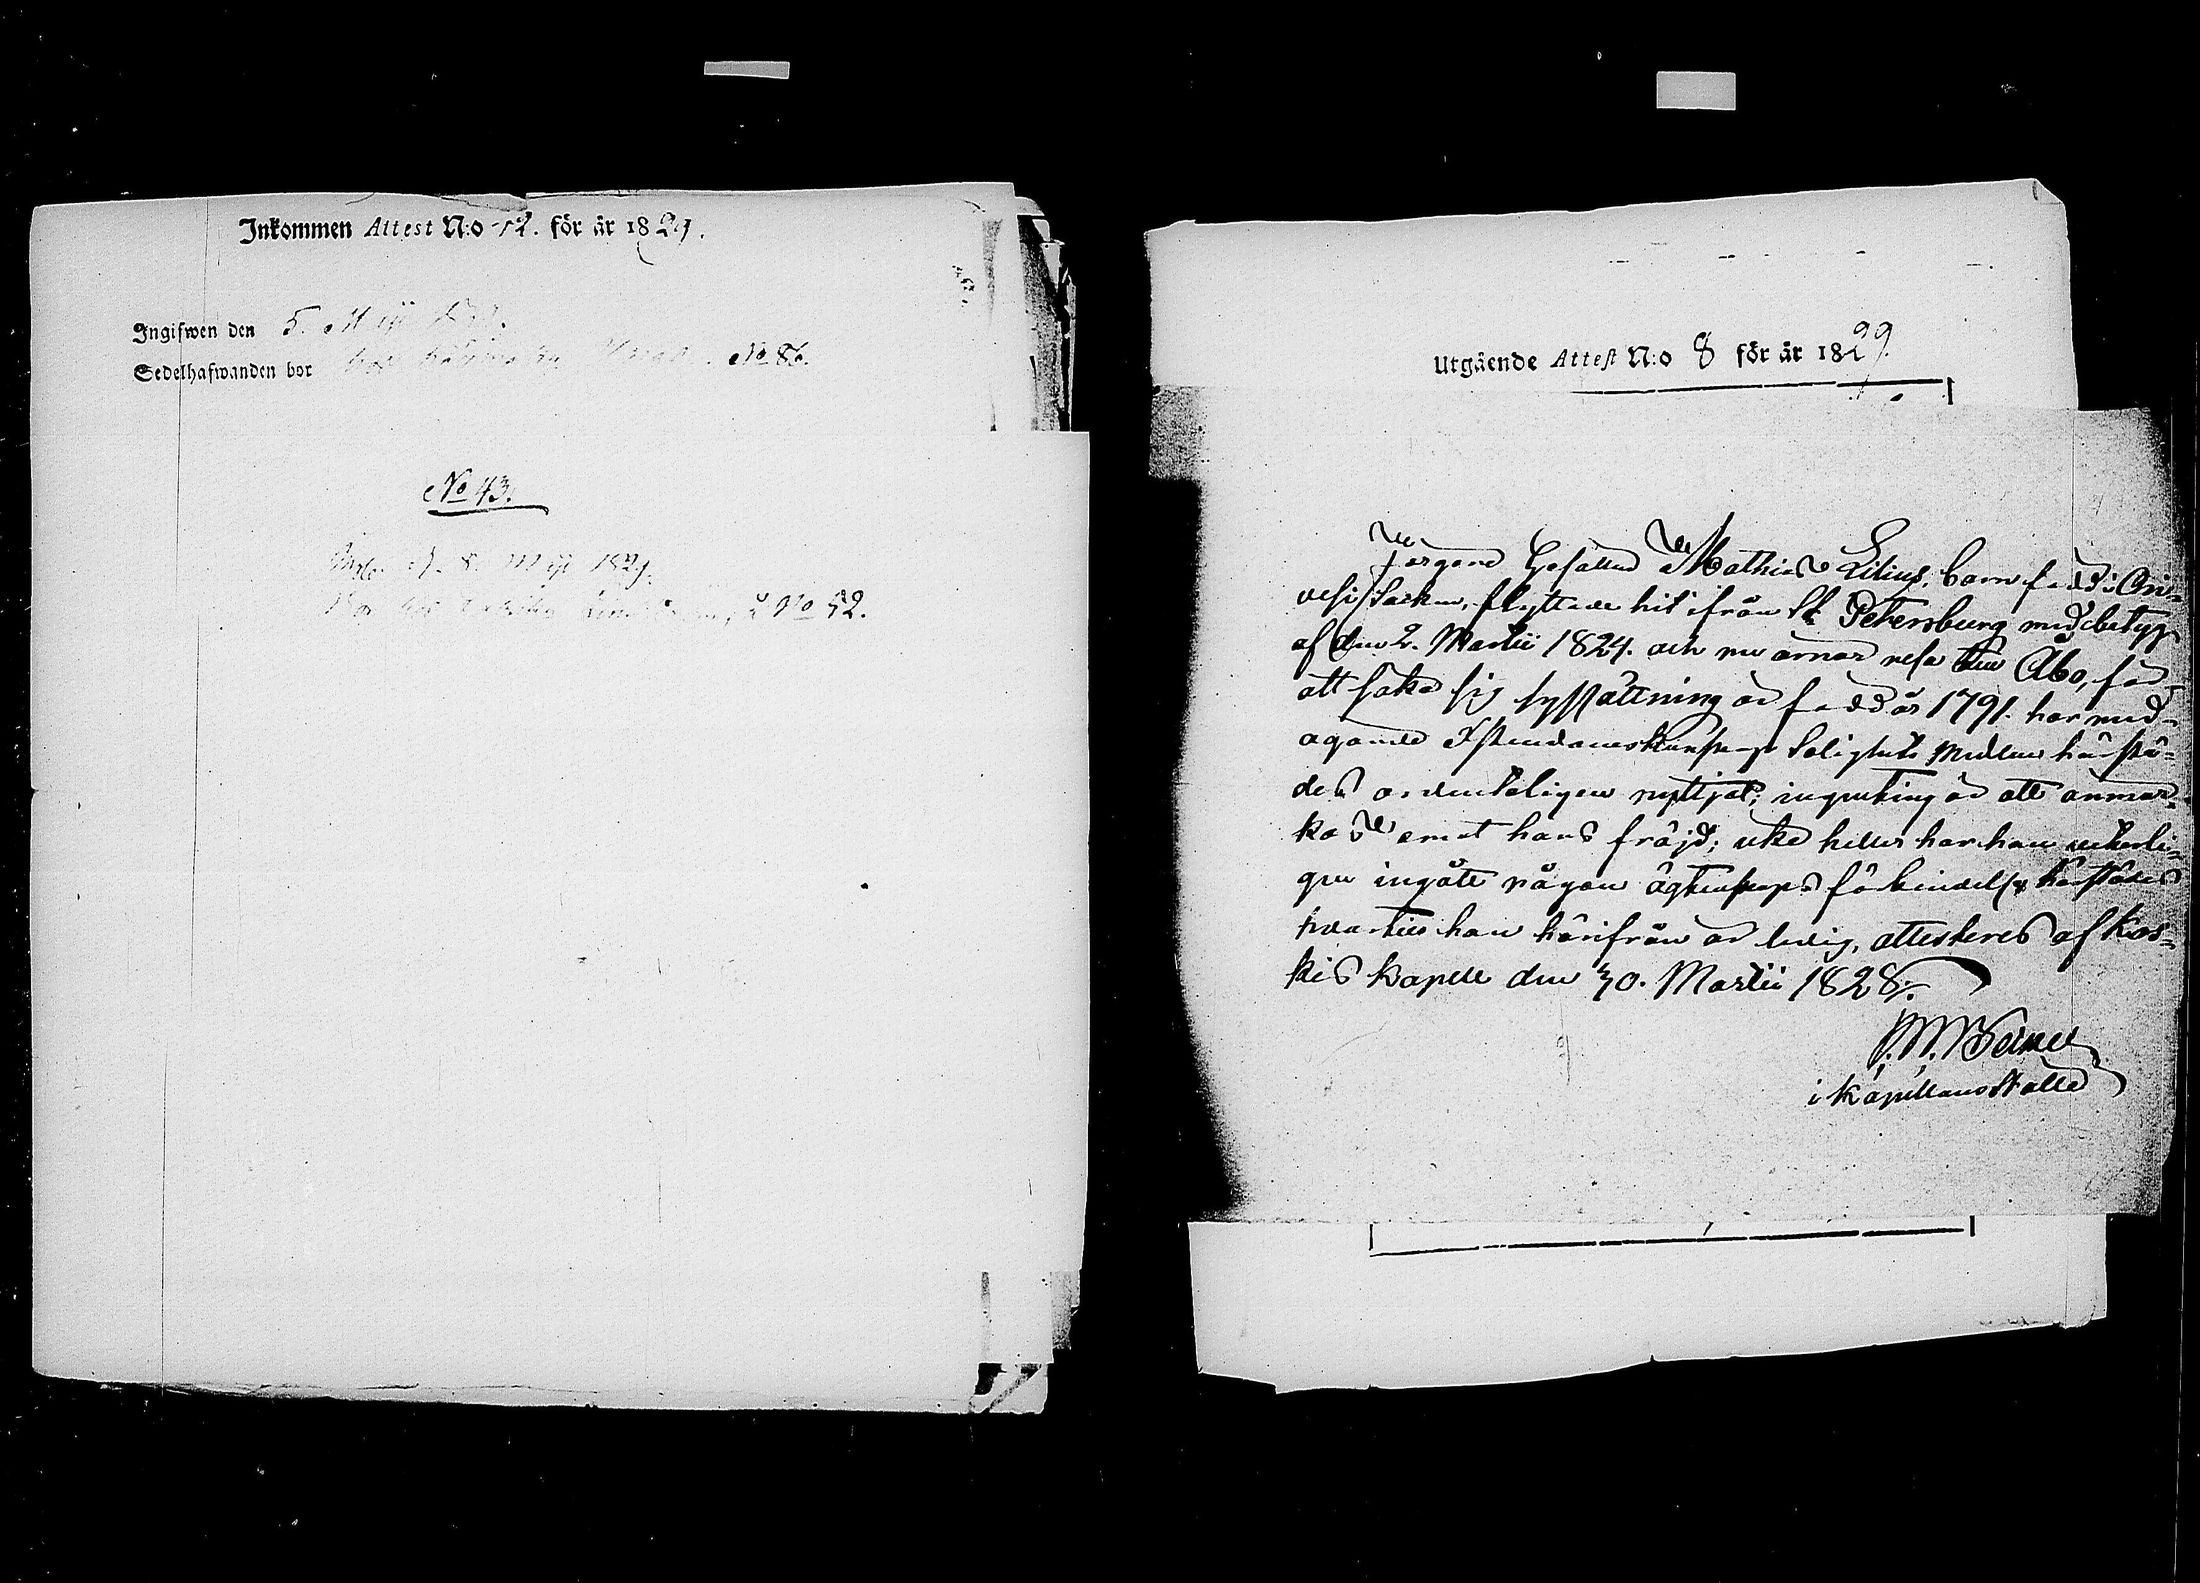 Inkommen Attest N:o 52. för år 1829.
Ingifwen den 5. Maji
Sedelhafwanden bor hos No 86.
No 43.
d. 8. Maji 1829.
Bor hos å No 52.
Utgående Attest N:o 8 för år 1829.
Gesällen Mathias Lilius, barn född i Ori-
vesi Socken, flyttade hit ifrån St Petersburg med betyg
af den 2. Martii 1824. och nu ärnar resa till Åbo, för
att söka sig syssättning är född år 1791. har med-
ägande Christendomskunskap Salighets Medlen härstä-
des ordenteligen nyttjat; ingenting är att anmär-
kas emot hans fräjd; icke heller har han veterli-
gen ingått någon ägtenskaps förbindelse härstädes
hvarföre han härifrån är ledig, attesteres af Kos-
kis Kapell den 30. Martii 1828.
i Kapellans ställe